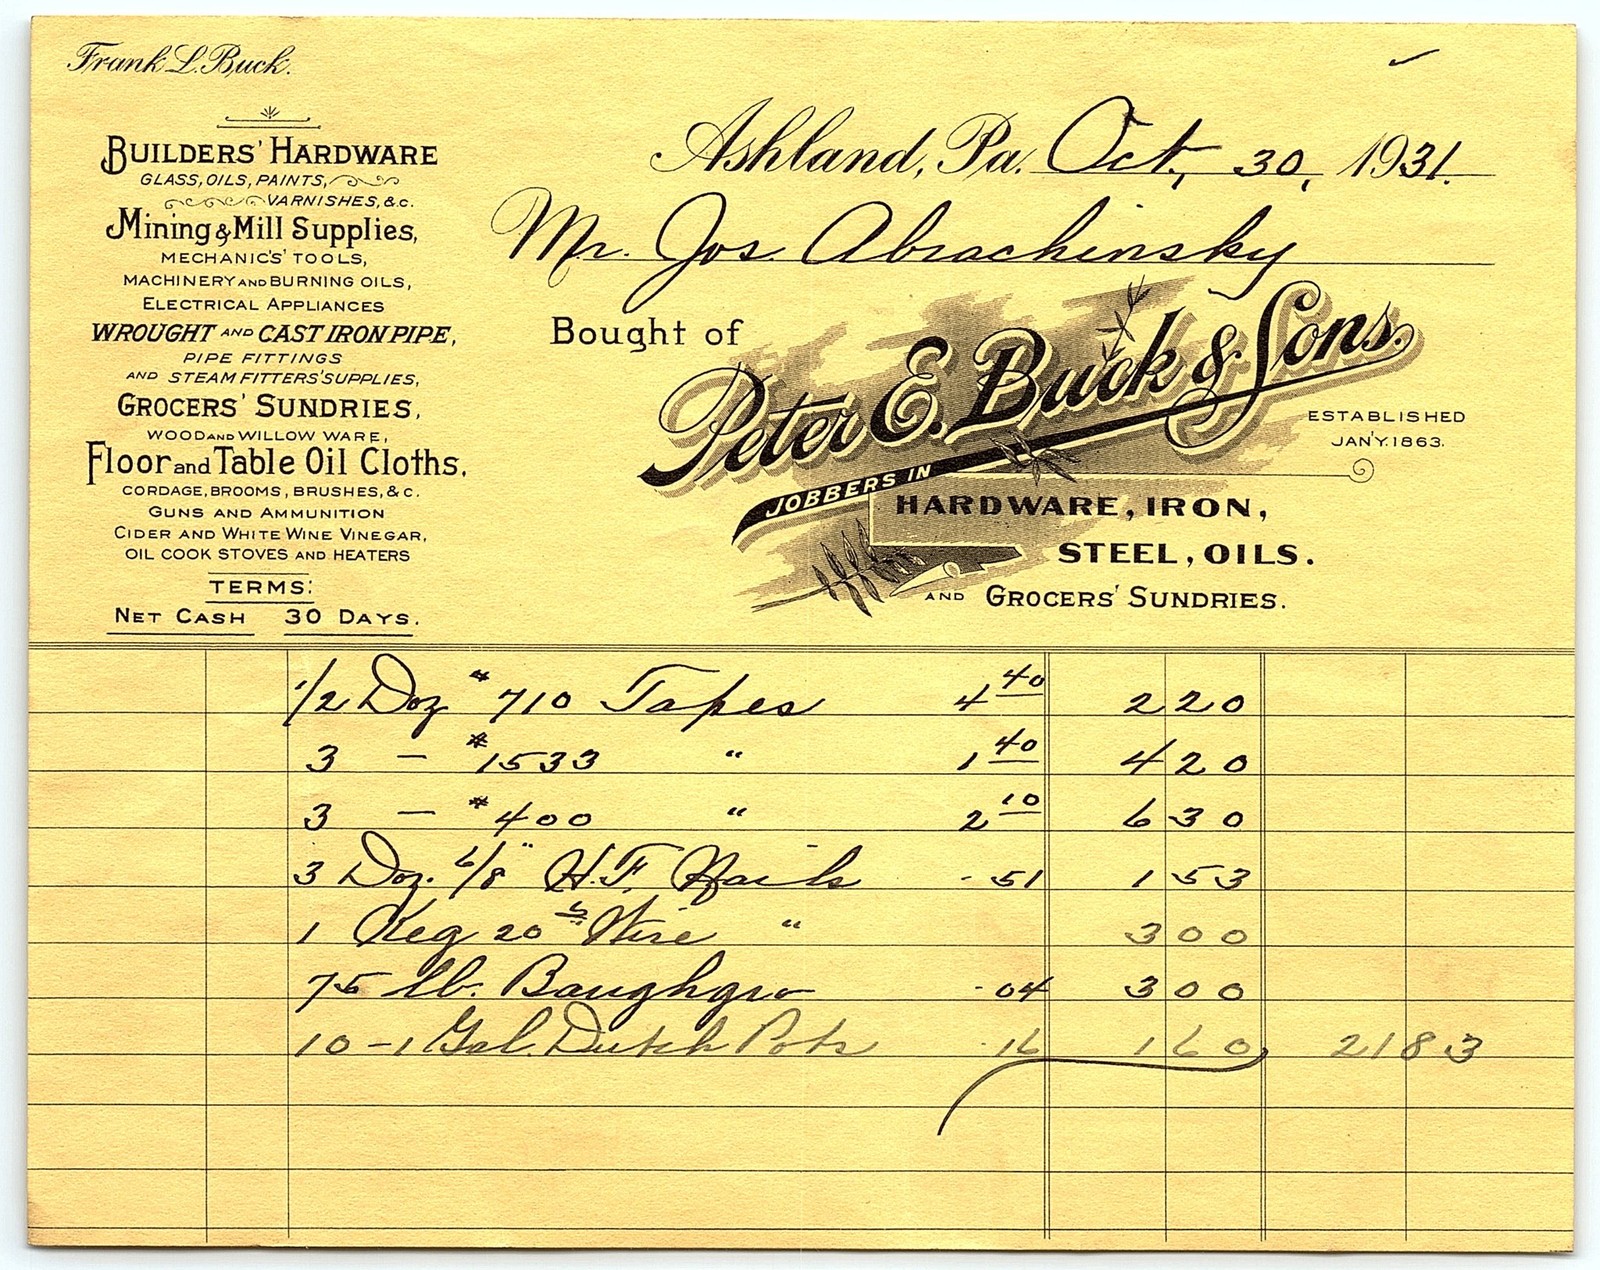 Frank L. Buck.
BUILDERS' HARDWARE
GLASS, OILS, PAINTS,
VARNISHES, &c.
Mining & Mill Supplies,
MECHANIC'S TOOLS,
MACHINERY AND BURNING OILS,
ELECTRICAL APPLIANCES
WROUGHT AND CAST IRON PIPE,
PIPE FITTINGS
AND STEAM FITTERS' SUPPLIES,
GROCERS' SUNDRIES,
WOOD AND WILLOW WARE,
Floor and Table Oil Cloths,
CORDAGE, BROOMS, BRUSHES, &c.
GUNS AND AMMUNITION
CIDER AND WHITE WINE VINEGAR,
OIL COOK STOVES AND HEATERS
TERMS:
NET CASH 30 DAYS.
Ashland, Pa. Oct., 30, 1931.
Mr. Jos. Abrachinsky
Bought of
Peter E. Buck & Sons.
ESTABLISHED
JAN'Y. 1863.
JOBBERS IN
HARDWARE, IRON,
STEEL, OILS.
AND GROCERS' SUNDRIES.
1/2 Doz # 710 Tapes 4 40 2 20
3 — # 1533 " 1 40 4 20
3 — # 400 " 2 10 6 30
3 Doz. 6/8" H.F. Nails .51 1 53
1 Keg 20 Wire " 3 00
75 lb. .04 3 00
10 - 1 Gal. Dutch Pots .16 1 60 21 83